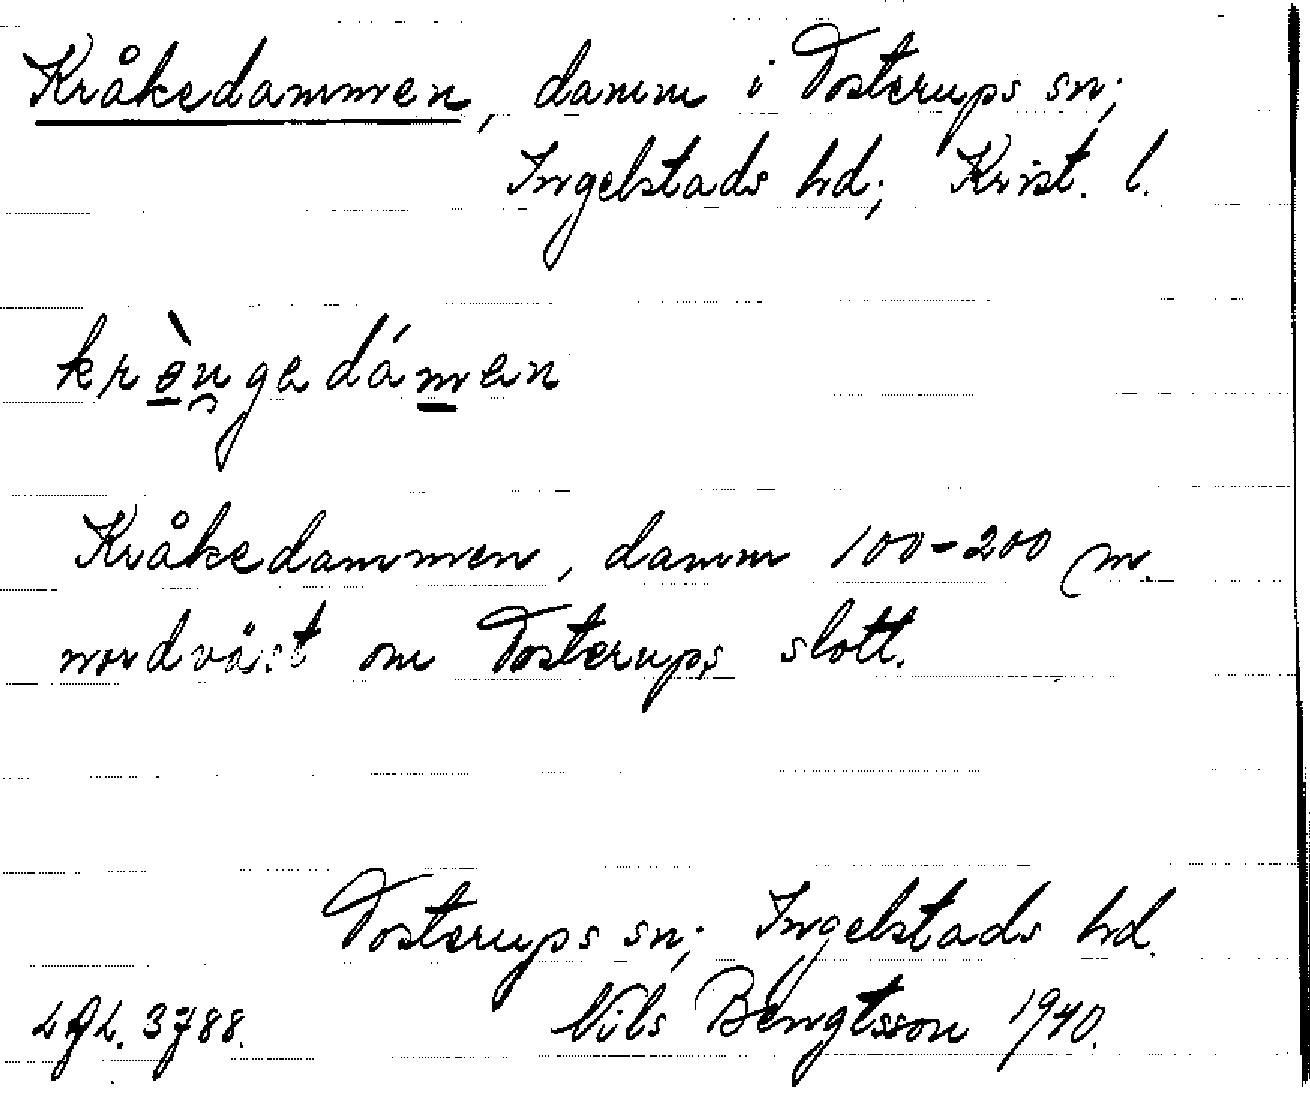 Kråkedammen, damm i Tosterups sn;
Ingelstads hd; Krist. l.
krə̀u̯gadámen
Kråkedammen, damm 100-200 m.
nordväst om Tosterups slott.
Tosterups sn; Ingelstads hd.
LgL. 3788. Nils Bengtsson 1940.